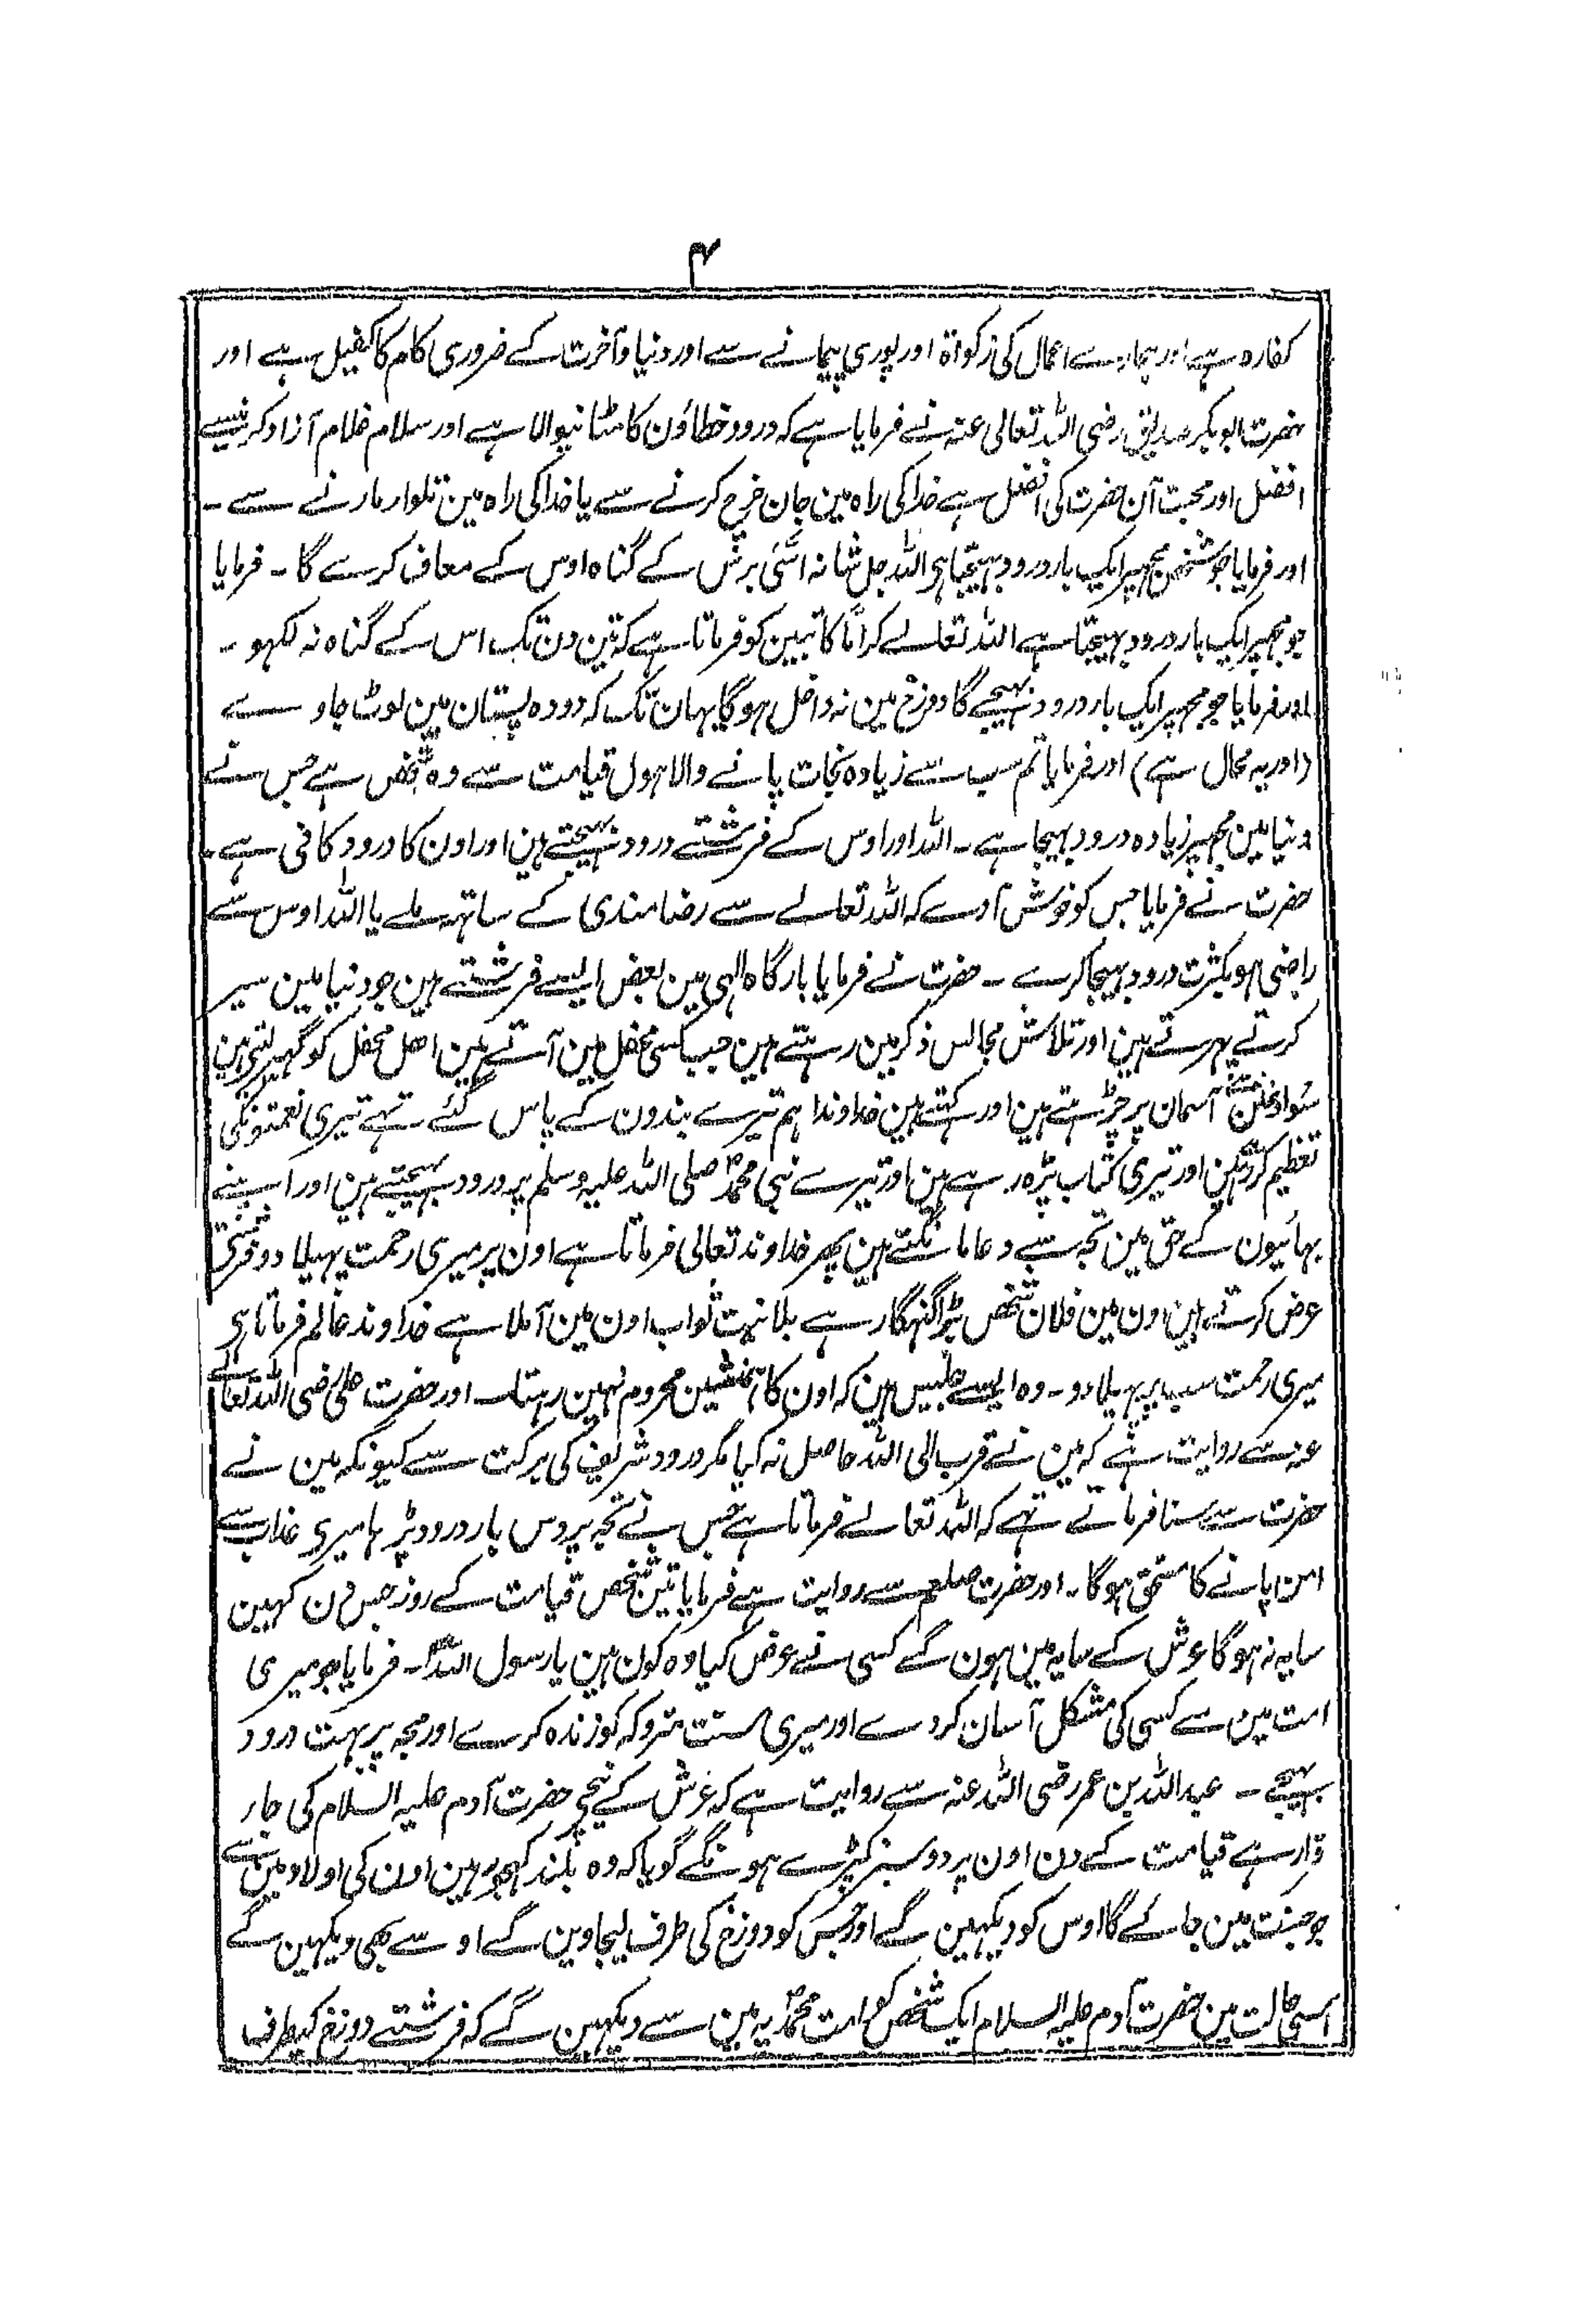 ۴
کفارہ ہے اور ہمارے اعمال کی زکواۃ اور پوری پیمانے سے اور دنیا و آخرت کے ضروری کام کا کفیل ہے اور
حضرت ابو بکر صدیق رضی اللہ تعالی عنہ نے فرمایا ہے کہ درود خطاؤن کا مٹا نیوالا ہے اور سلام غلام آزاد کرنیسے
افضل اور محبت آن حضرت کی افضل ہے خدا کی راہ مین جان خرچ کرنے سے یا خدا کی راہ مین تلوار مارنے سے ۔
اور فرمایا جو شخص مجھپر ایک بار درود بہیجتا ہی اللہ جل شانہ اسّی برس کے گناہ اوس کے معاف کرے گا ۔ فرمایا
جو مجھپر ایک بار درود بہیجتا ہے اللہ تعالے کراماً کاتبین کو فرماتا ہے کہ تین دن تک اس کے گناہ نہ لکہو ۔
اور فرمایا جو مجھپر ایک بار درود بہیجے گا دوزخ مین نہ داخل ہوگا یہان تک کہ دودہ پستان مین لوٹ جاوے
(اور یہ محال ہے) اور فرمایا تم سب سے زیادہ نجات پانے والا ہول قیامت سے وہ شخص ہے جس نے
دنیا مین مجھپر زیادہ درود بہیجا ہے ۔ اللہ اور اوس کے فرشتے درود بہیجتے ہین اور اون کا درود کافی ہے ۔
حضرت نے فرمایا جس کو خوش آوے کہ اللہ تعالے سے رضامندی کے ساتہہ ملے یا اللہ اوس سے
راضی ہو بکثرت درود بہیجا کرے ۔ حضرت نے فرمایا بارگاہ الہی مین بعض ایسے فرشتے ہین جو دنیا مین سیر
کرتے پہرتے ہین اور تلاش مجالس ذکر مین رہتے ہین جب کسی محفل مین آتے ہین اھل محفل کو گہیر لیتی ہین
آسمان پر چڑہتے ہین اور کہتے ہین خداوندا ہم تیرے بندون کے پاس گئے تہے تیری نعمتونکی
تعظیم کرتے ہین اور تیری کتاب پڑہ رہے ہین اور تیرے نبی محمدؐ صلی اللہ علیہ وسلم پر درود بہیجتے ہین اور اپنے
بہائیون کے حق مین تجہ سے دعا مانگتے ہین پھر خداوند تعالی فرماتا ہے اون پر میری رحمت پہیلا دو فرشتے
عرض کرتے ہین اون مین فلان شخص بڑا گنہگار ہے بلا نیت ثواب اون مین آ ملا ہے خداوند عالم فرماتا ہی
میری رحمت سب پر پہیلا دو ۔ وہ ایسے جلیس ہین کہ اون کا ہمنشین محروم نہین رہتا ۔ اور حضرت علی رضی اللہ تعالے
عنہ سے روایت ہے کہ مین نے قرب الی اللہ حاصل نہ کیا مگر درود شریف کی برکت سے کیونکہ مین نے
حضرت سے سنا فرماتے تہے کہ اللہ تعالے فرماتا ہے جس نے تجہ پر دس بار درود پڑہا میری عذاب سے
امن پانے کا مستحق ہوگا ۔ اور حضرت صلعم سے روایت ہے فرمایا تین شخص قیامت کے روز جس دن کہین
سایہ نہ ہوگا عرش کے سایہ مین ہون گے کسی نے عرض کیا وہ کون ہین یا رسول اللہؐ ۔ فرمایا جو میری
امت مین سے کسی کی مشکل آسان کردے اور میری سنت متروکہ کو زندہ کرے اور مجہ پر بہت درود
بہیجے ۔ عبداللہ بن عمر رضی اللہ عنہ سے روایت ہے کہ عرش کے نیچے حضرت آدم علیہ السلام کی جار
قرار ہے قیامت کے دن اون پر دو سبز کپڑے ہونگے گویا کہ وہ بلند کہجور ہین اون کی اولاد مین سے
جو جنت مین جائے گا اوس کو دیکہین گے اور جس کو دوزخ کی طرف لیجاوین گے اوسے بھی دیکہین گے
اسی حالت مین حضرت آدم علیہ السلام ایک شخص کو امت محمدؐیہ مین سے دیکہین گے کہ فرشتے دوزخ کیطرف